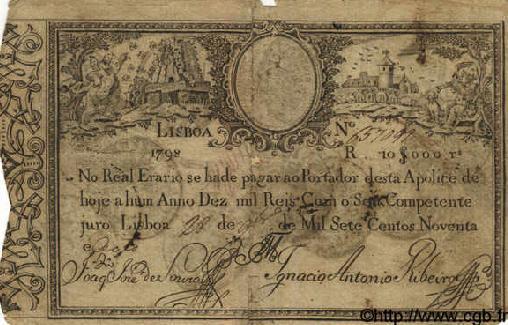 LISBOA Nº
1798 R. 10$000 rs
No Real Erario se hade pagar ao Portador desta Apolice de
hoje a hum Anno Dez mil Reis Com o Seu Competente
juro Lisboa 28 de de Mil Sete Centos Noventa
e
Joaq Joze de Souza Ignacio Antonio Ribeiro
©http://www.cgb.fr